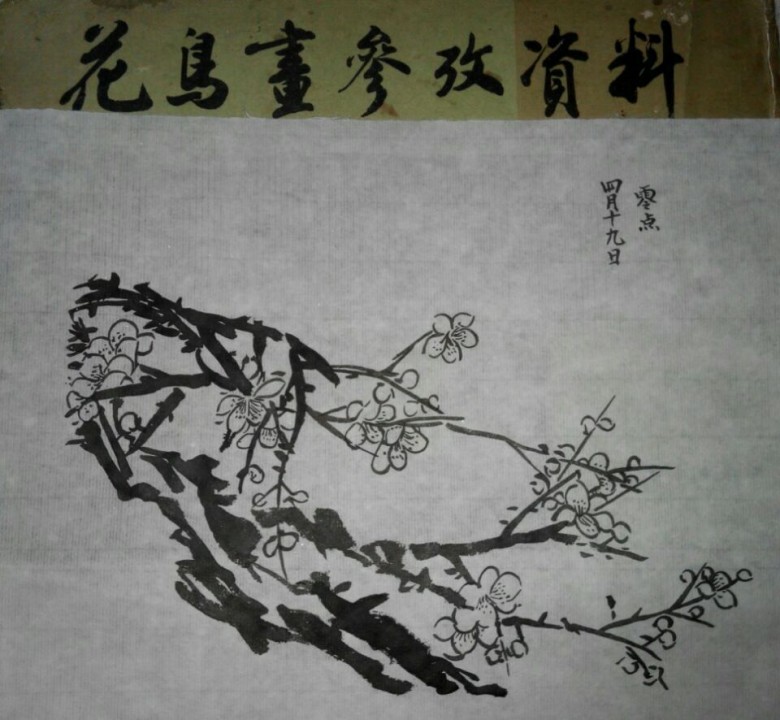 花鳥畫參攷資料
零点
四月十九日